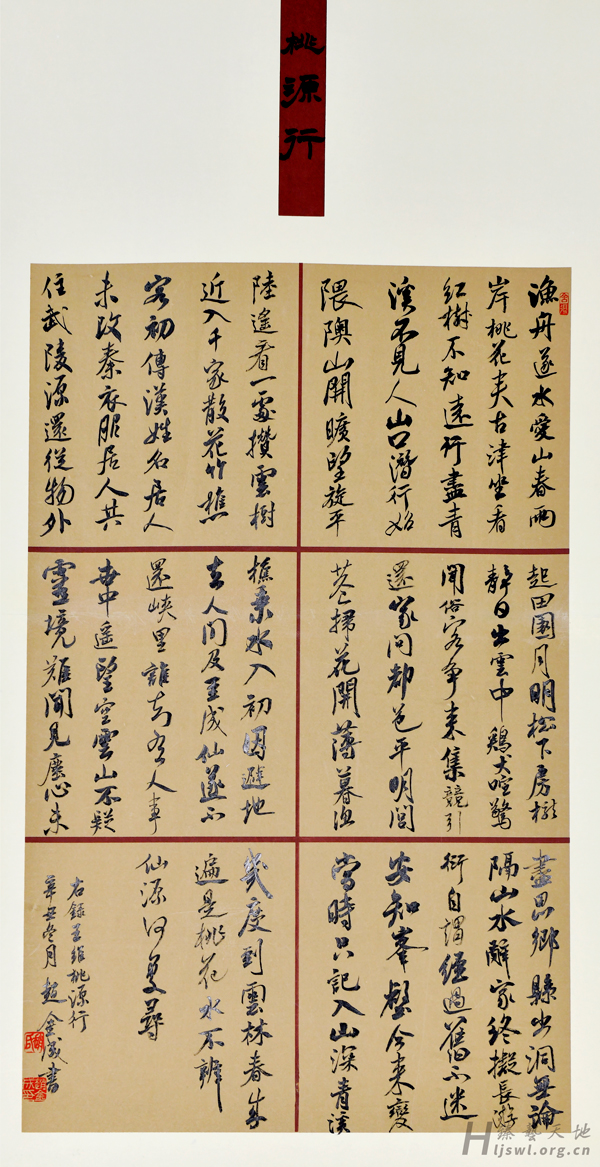 桃源行
漁舟遂水愛山春兩
岸桃花夾古津坐看
紅樹不知遠行盡青
溪不見人山口潛行始
隈隩山開曠望旋平
陸遙看一處攢雲樹
近入千家散花竹樵
客初傳漢姓名居人
未改秦衣服居人共
住武陵源還從物外
起田園月明松下房櫳
靜日出雲中鷄犬喧驚
聞俗客爭來集競引
還家問都邑平明閭
巷掃花開薄暮漁
樵乘水入初因避地
去人間及至成仙遂不
還峽里誰知有人事
世中遙望空雲山不疑
靈境難聞見塵心未
盡思鄉縣出洞無論
隔山水辭家終擬長游
衍自謂經過舊不迷
安知峯壑今來變
當時只記入山深青溪
幾度到雲林春來
遍是桃花水不辨
仙源何處尋
右錄王維桃源行
辛丑冬月趙金成書
藝天地
Hljswl.org.cn